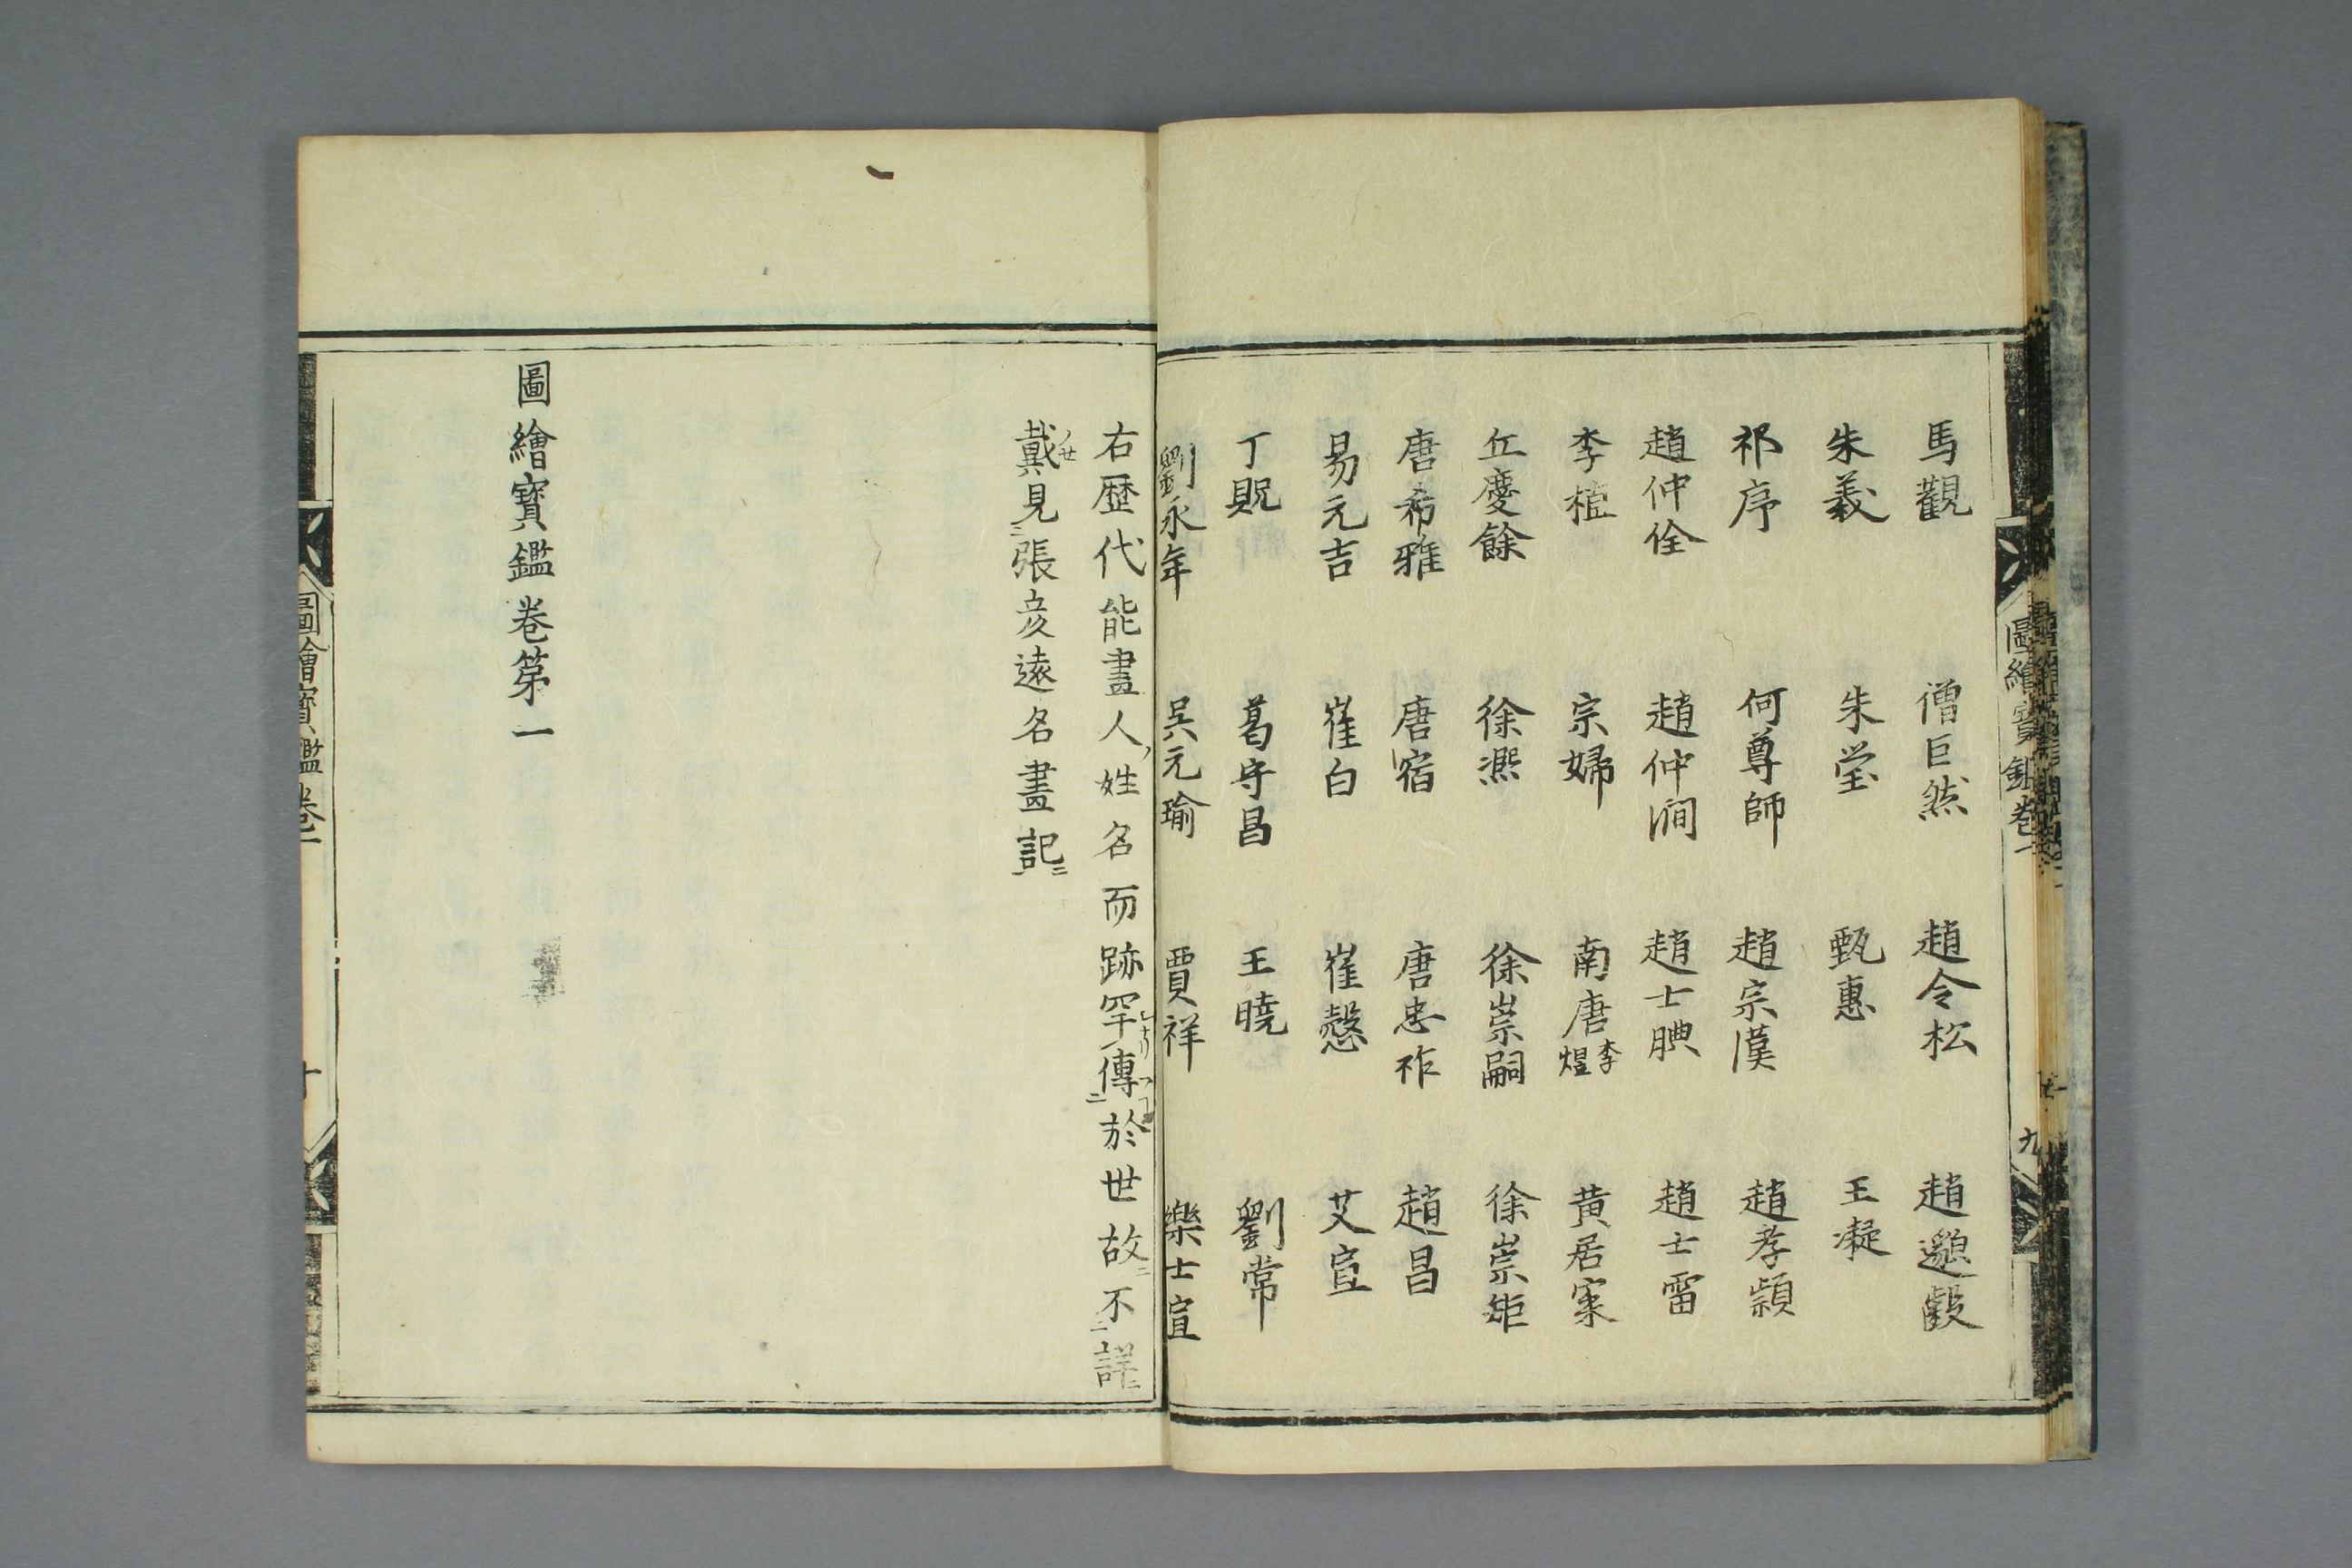 馬觀 僧巨然 趙令松 趙邈齪
朱羲 朱瑩 甄惠 王凝
祁序 何尊師 趙宗漢 趙孝頴
趙仲佺 趙仲澗 趙士腆 趙士雷
李植 宗婦 南唐李煜 黄居寀
丘慶餘 徐熈 徐崇嗣 徐崇矩
唐希雅 唐宿 唐忠祚 趙昌
易元吉 崔白 崔慤 艾宣
丁貺 葛守昌 王曉 劉常
劉永年 吳元瑜 賈祥 樂士宣
右歷代能畫人姓名而跡罕傳於世故不詳
戴見張彦遠名畫記
圖繪寶鑑卷第一
圖繪寶鑑卷一 九
圖繪寶鑑卷一 十